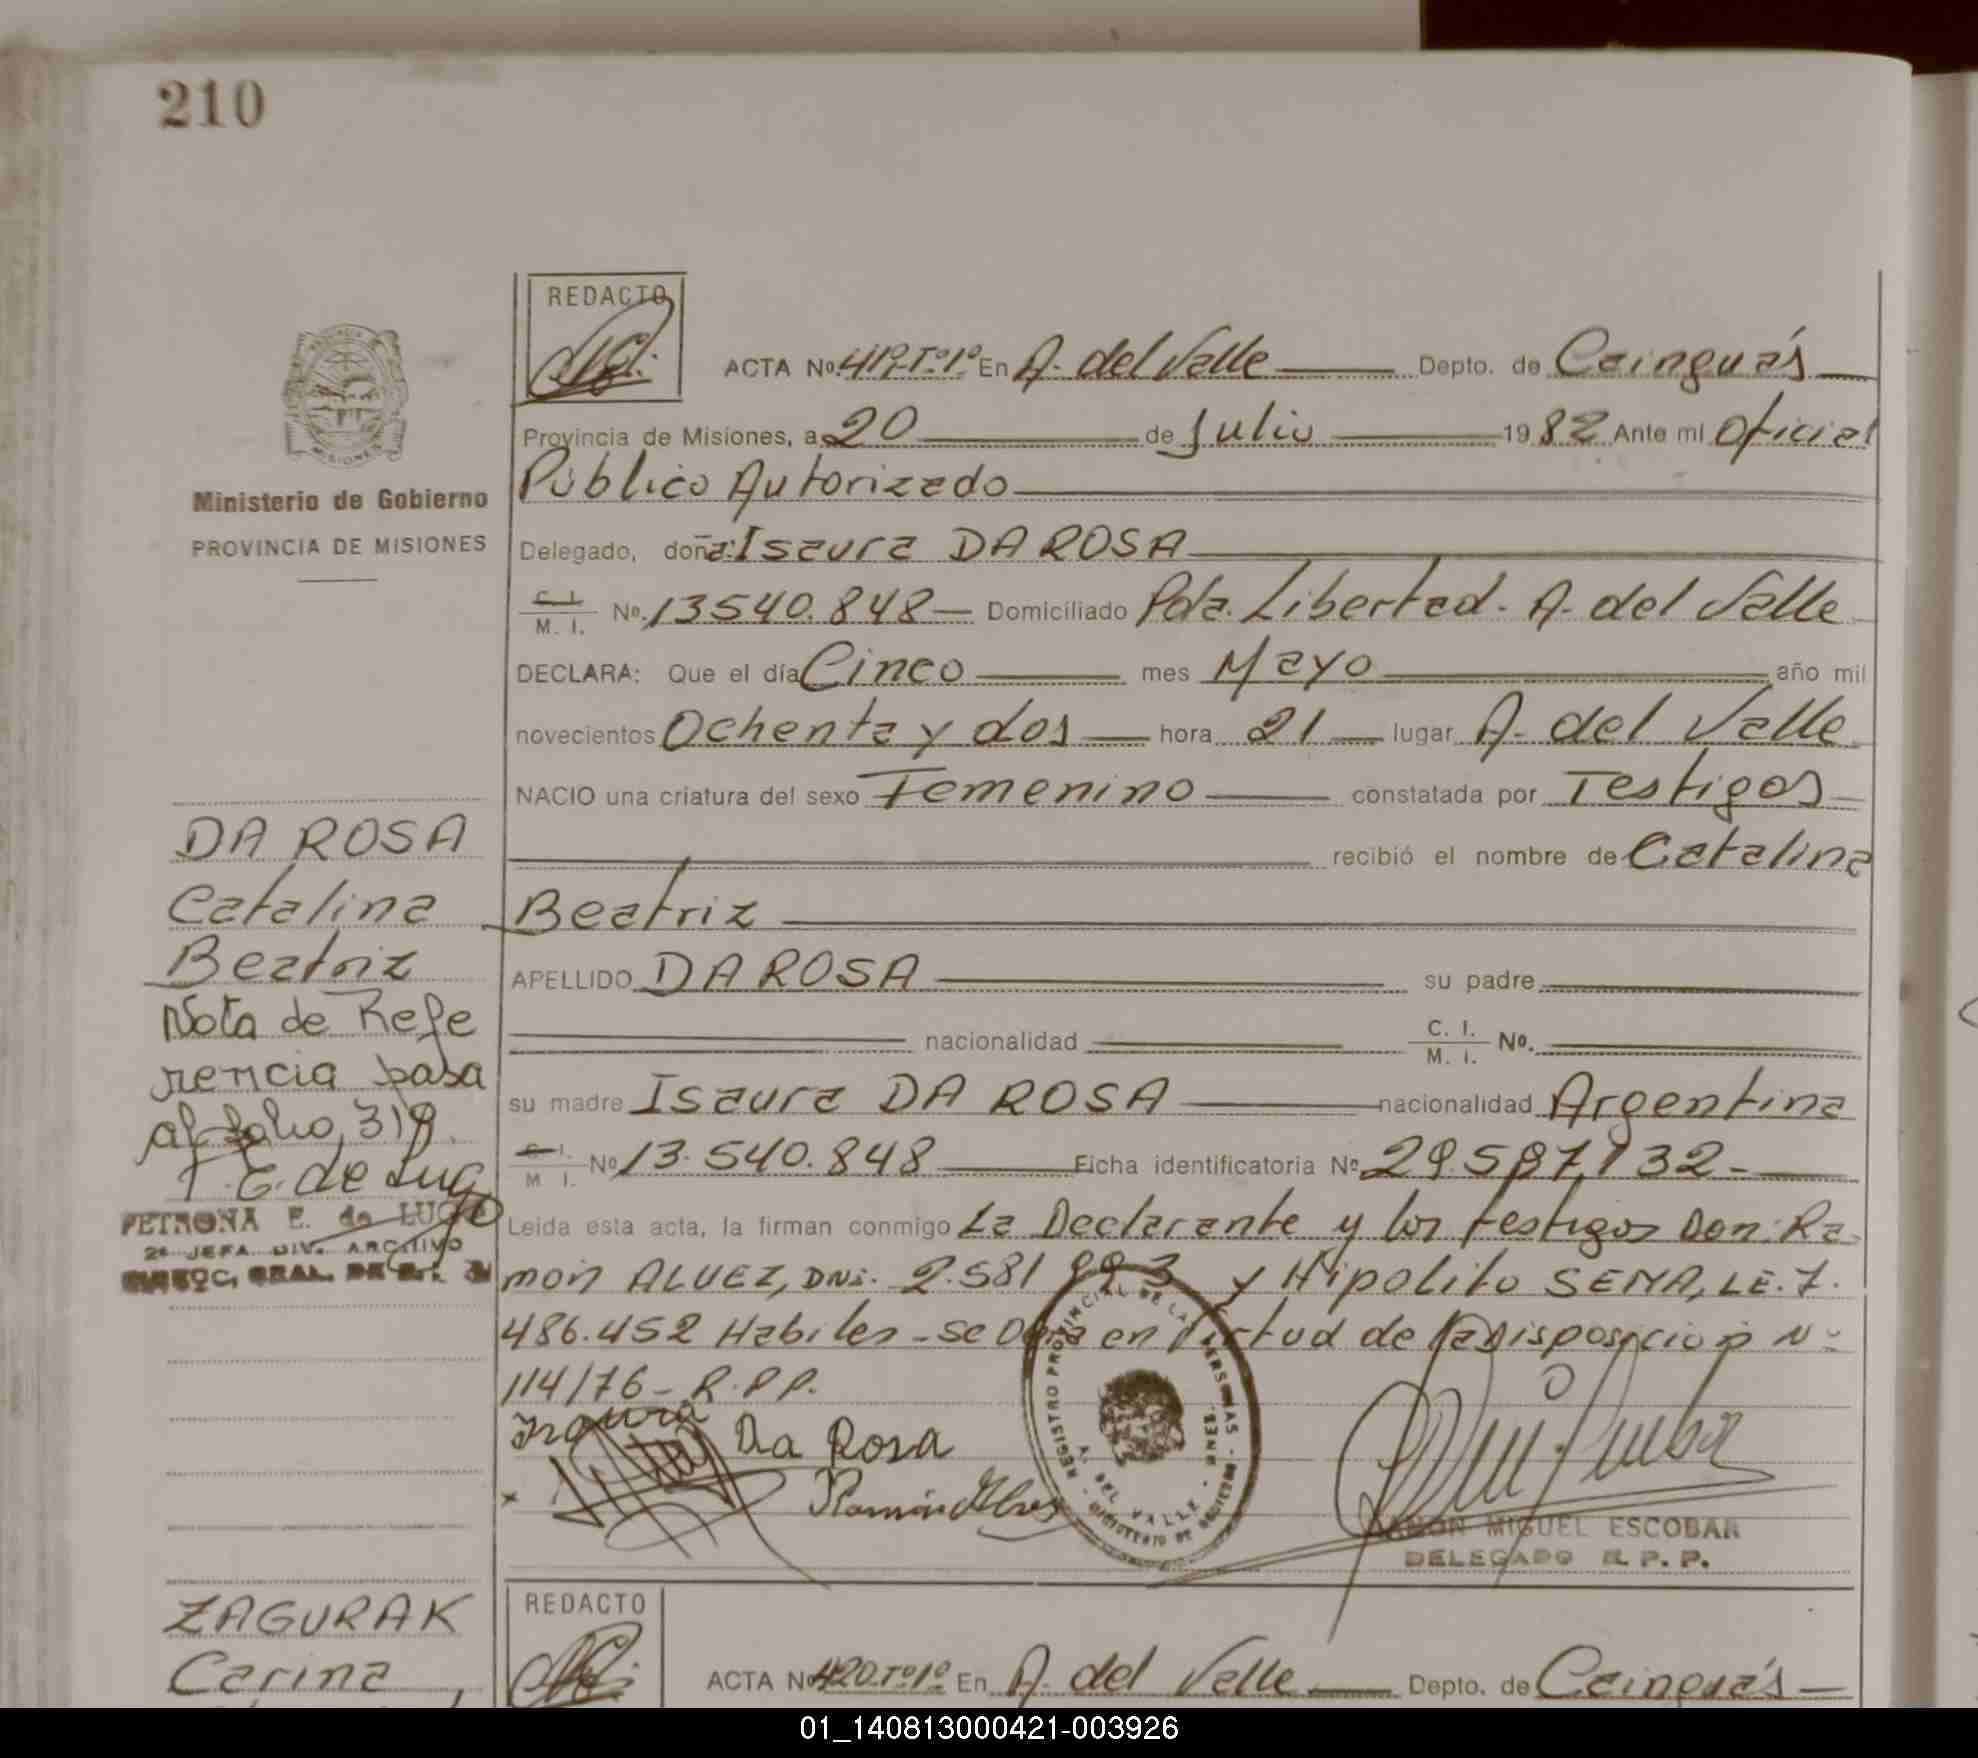 210
REDACTO
ACTA No. 419-Tº1º En A. del Valle Depto. de Cainguás
Provincia de Misiones, a 20 de Julio 1982 Ante mi Oficial
Público Autorizado
Ministerio de Gobierno
PROVINCIA DE MISIONES
Delegado, doña: Isaura DA ROSA
C. I.
M. I. No. 13540.848 Domiciliado Pda. Libertad. A. del Valle
DECLARA: Que el día Cinco mes Mayo año mil
novecientos Ochenta y dos hora 21 lugar A. del Valle
NACIO una criatura del sexo Femenino constatada por Testigos
recibió el nombre de Catalina
Beatriz
APELLIDO DA ROSA su padre
nacionalidad C. I. M. I. No.
su madre Isaura DA ROSA nacionalidad Argentina
C. I. M. I. No 13.540.848 Ficha identificatoria No
Leida esta acta, la firman conmigo La Declarante y los testigos Don: Ra-
món ALVEZ, DNI. 2.581 993 y Hipolito SENA, LE. 7.
486.452 Habiles - se en virtud de la Disposición Nº
114/76 - R.P.P.
Isaura Da Rosa
Ramón Alves
REGISTRO PROVINCIAL DE LAS PERSONAS
A. DEL VALLE
MINISTERIO DE GOBIERNO
RAMON MIGUEL ESCOBAR
DELEGADO R. P. P.
DA ROSA
Catalina
Beatriz
Nota de Refe
rencia pasa
al folio 319
P. E. de Lugo
PETRONA E. de LUGO
2ª JEFA DIV. ARCHIVO
ZAGURAK
Carina
REDACTO
ACTA No 420 Tº1º En A. del Valle Depto. de Cainguás
01_140813000421-003926